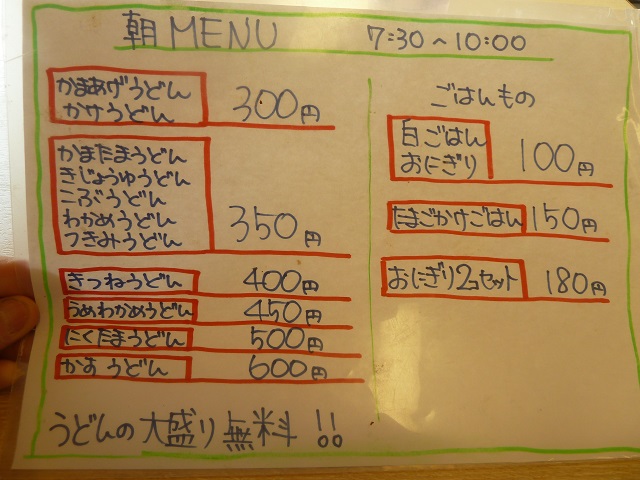 朝MENU 7:30～10:00
かまあげうどん
かけうどん
300円
かまたまうどん
きじょうゆうどん
こぶうどん
わかめうどん
つきみうどん
350円
きつねうどん 400円
うめわかめうどん 450円
にくたまうどん 500円
かすうどん 600円
うどんの大盛り無料!!
ごはんもの
白ごはん
おにぎり
100円
たまごかけごはん 150円
おにぎり2コセット 180円